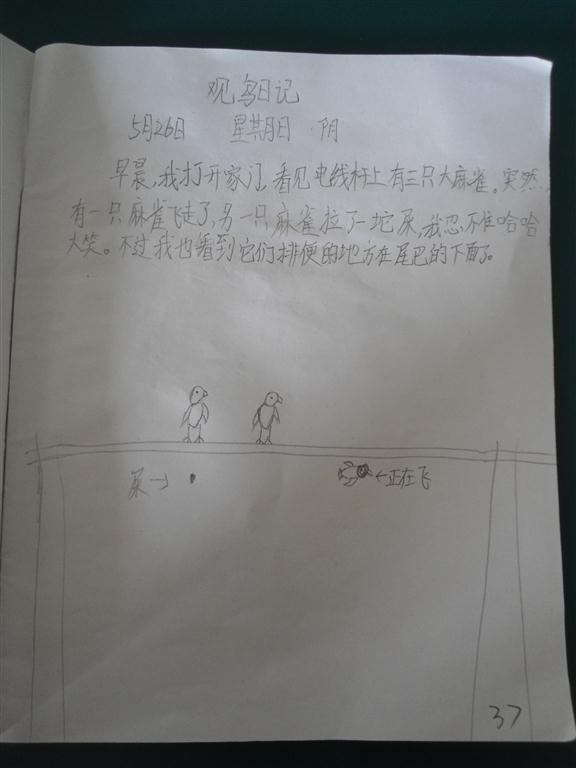 观鸟日记
5月26日 星期日 阴
早晨,我打开家门,看见电线杆上有三只大麻雀。突然,
有一只麻雀飞走了,另一只麻雀拉了一坨屎,我忍不住哈哈
大笑。不过我也看到它们排便的地方在尾巴的下面了。
屎→
←正在飞
37